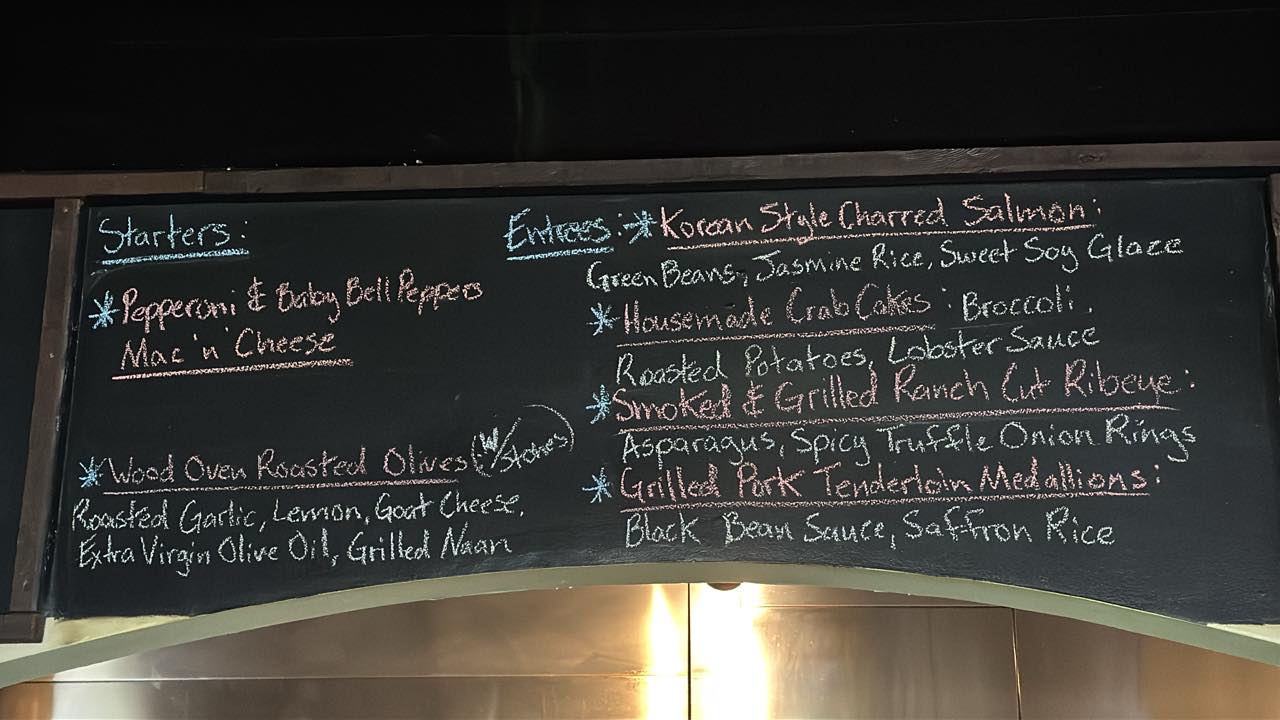 Starters:
*Pepperoni & Baby Bell Peppers
Mac 'n' Cheese
*Wood Oven Roasted Olives (w/Stones)
Roasted Garlic, Lemon, Goat Cheese,
Extra Virgin Olive Oil, Grilled Naan
Entrees: *Korean Style Charred Salmon:
Green Beans, Jasmine Rice, Sweet Soy Glaze
*Housemade Crab Cakes: Broccoli,
Roasted Potatoes, Lobster Sauce
*Smoked & Grilled Ranch Cut Ribeye:
Asparagus, Spicy Truffle Onion Rings
*Grilled Pork Tenderloin Medallions:
Black Bean Sauce, Saffron Rice